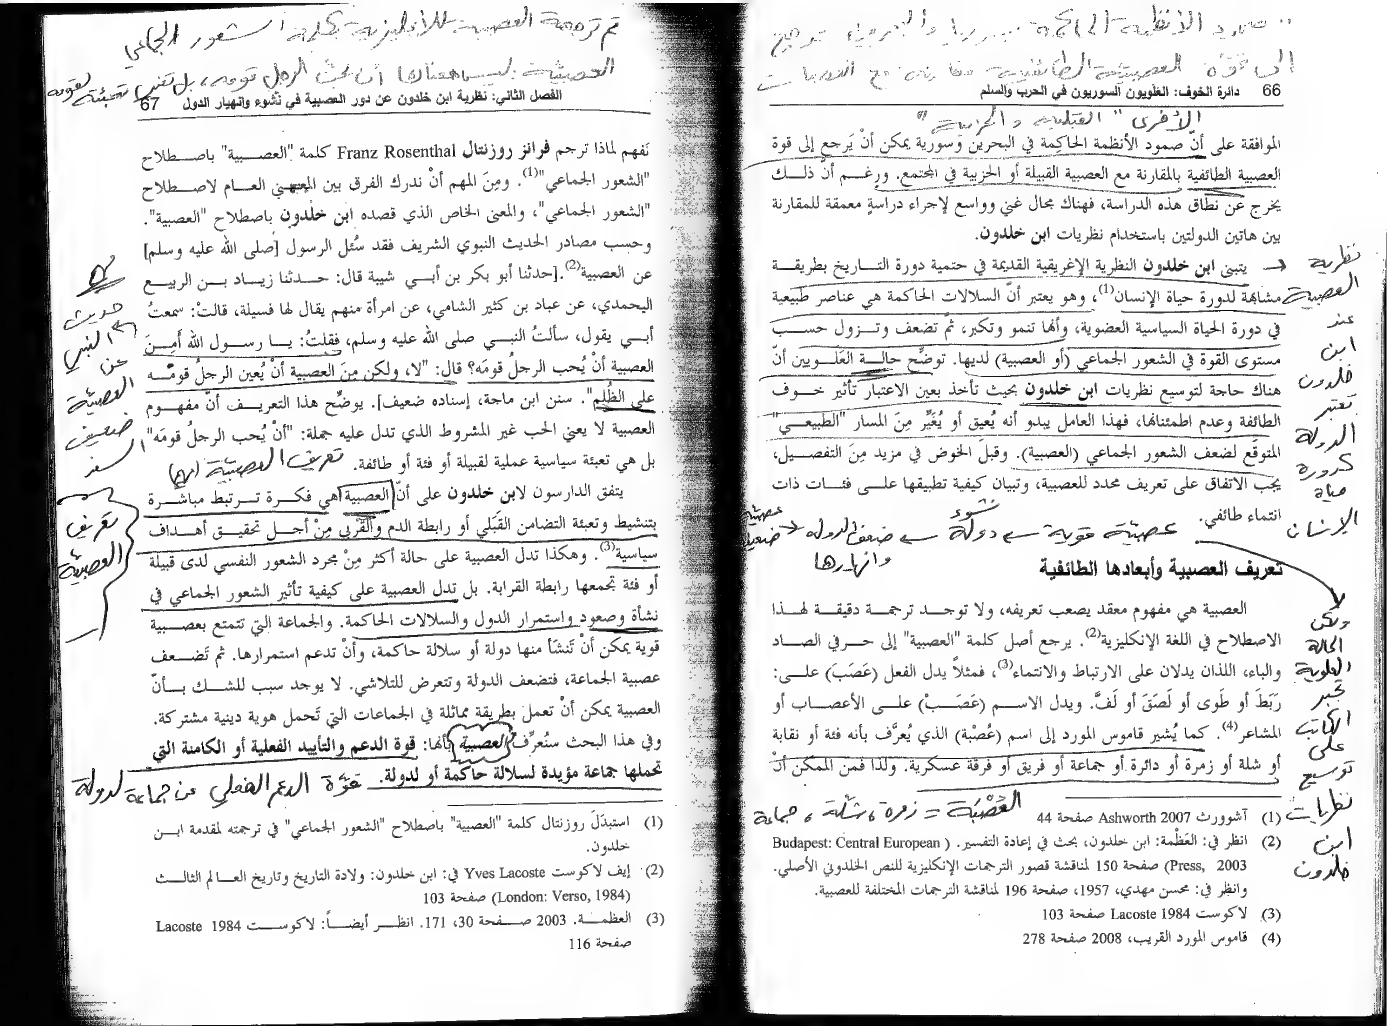 .. صمود الأنظمة الحاكمة بسوريا والبحرين
إلى قوة العصبية الطائفية مقارنة مع العصبيات
66 دائرة الخوف: العلويون السوريون في الحرب والسلم
الأخرى "القبلية والحزبية"
الموافقة على أنّ صمود الأنظمة الحاكِمة في البحرين وسورية يمكن أنْ يَرجع إلى قوة
العصبية الطائفية بالمقارنة مع العصبية القبيلة أو الحزبية في المجتمع. ورغم أنّ ذلك
يخرج عن نطاق هذه الدراسة، فهناك مجال غني وواسع لإجراء دراسةٍ معمقة للمقارنة
بين هاتين الدولتين باستخدام نظريات ابن خلدون.
يتبنى ابن خلدون النظرية الإغريقية القديمة في حتمية دورة التاريخ بطريقة
مشابهة لدورة حياة الإنسان(1)، وهو يعتبر أنّ السلالات الحاكمة هي عناصر طبيعية
في دورة الحياة السياسية العضوية، وأنها تنمو وتكبر، ثمّ تضعف وتزول حسب
مستوى القوة في الشعور الجماعي (أو العصبية) لديها. توضّح حالة العَلَويين أنّ
هناك حاجة لتوسيع نظريات ابن خلدون بحيث تأخذ بعين الاعتبار تأثير خوف
الطائفة وعدم اطمئنانها، فهذا العامل يبدو أنه يُعيق أو يُغَيِّر مِنَ المسار "الطبيعي"
المتوقَّع لضعف الشعور الجماعي (العصبية). وقبل الخوض في مزيد مِنَ التفصيل،
يجب الاتفاق على تعريف محدد للعصبية، وتبيان كيفية تطبيقها على فئات ذات
انتماء طائفي.
عصبية قوية ← نشوء دولة ← ضعف الدولة وانهيارها
تعريف العصبية وأبعادها الطائفية
العصبية هي مفهوم معقد يصعب تعريفه، ولا توجد ترجمة دقيقة لهذا
الاصطلاح في اللغة الإنكليزية(2). يرجع أصل كلمة "العصبية" إلى حرفي الصاد
والباء، اللذان يدلان على الارتباط والانتماء(3)، فمثلاً يدل الفعل (عَصَبَ) على:
رَبَطَ أو طَوى أو لَصَقَ أو لَفَّ. ويدل الاسم (عَصَبْ) على الأعصاب أو
المشاعر(4). كما يُشير قاموس المورد إلى اسم (عُصْبة) الذي يُعرَّف بأنه فئة أو نقابة
أو شلة أو زمرة أو دائرة أو جماعة أو فريق أو فرقة عسكرية. ولذا فمن الممكن أنْ
العُصْبَة = زمرة، شلّة، جماعة
(1) آشوورث Ashworth 2007 صفحة 44
(2) انظر في: العَظْمة: ابن خلدون، بحث في إعادة التفسير. (Budapest: Central European
Press, 2003) صفحة 150 لمناقشة قصور الترجمات الإنكليزية للنص الخلدوني الأصلي.
وانظر في: محسن مهدي، 1957، صفحة 196 لمناقشة الترجمات المختلفة للعصبية.
(3) لاكوست Lacoste 1984 صفحة 103
(4) قاموس المورد القريب، 2008 صفحة 278
نظرية
العصبية
عند
ابن
خلدون
تعتبر
الدولة
كدورة
حياة
الإنسان
ولكن
الحالة
العلوية
تجبر
الكاتب
على
توسيع
نظريات
ابن
خلدون
تم ترجمة العصبية للأنكليزية بكلمة الشعور الجماعي
العصبية ليس معناها أن يحب الرجل قومه، بل تعني تعبئة لقومه
الفصل الثاني: نظرية ابن خلدون عن دور العصبية في نشوء وانهيار الدول 67
نَفهم لماذا ترجم فرانز روزنتال Franz Rosenthal كلمة "العصبية" باصطلاح
"الشعور الجماعي"(1). ومِنَ المهم أنْ ندرك الفرق بين المعنى العام لاصطلاح
"الشعور الجماعي"، والمعنى الخاص الذي قصده ابن خلدون باصطلاح "العصبية".
وحسب مصادر الحديث النبوي الشريف فقد سُئل الرسول [صلى الله عليه وسلم]
عن العصبية(2). [حدثنا أبو بكر بن أبي شيبة قال: حدثنا زياد بن الربيع
اليحمدي، عن عباد بن كثير الشامي، عن امرأة منهم يقال لها فسيلة، قالتْ: سمعتُ
أبي يقول، سألتُ النبي صلى الله عليه وسلم، فقلتُ: يا رسول الله أمِنَ
العصبية أنْ يُحب الرجلُ قومَه؟ قال: "لا، ولكن مِنَ العصبية أنْ يُعين الرجلُ قومَه
على الظُلم". سنن ابن ماجة، إسناده ضعيف]. يوضِّح هذا التعريف أنّ مفهوم
العصبية لا يعني الحب غير المشروط الذي تدل عليه جملة: "أنْ يُحب الرجلُ قومَه"
بل هي تعبئة سياسية عملية لقبيلة أو فئة أو طائفة. تعريف العصبية
يتفق الدارسون لابن خلدون على أنّ العصبية هي فكرة ترتبط مباشرة
بتنشيط وتعبئة التضامن القَبَلي أو رابطة الدم والقُربى مِنْ أجل تحقيق أهداف
سياسية(3). وهكذا تدل العصبية على حالة أكثر مِنْ مجرد الشعور النفسي لدى قبيلة
أو فئة تجمعها رابطة القرابة. بل تدل العصبية على كيفية تأثير الشعور الجماعي في
نشأة وصعود واستمرار الدول والسلالات الحاكمة. والجماعة التي تتمتع بعصبية
قوية يمكن أنْ تَنشَأ منها دولة أو سلالة حاكمة، وأنْ تدعم استمرارها. ثم تَضعف
عصبية الجماعة، فتضعف الدولة وتتعرض للتلاشي. لا يوجد سبب للشك بأنّ
العصبية يمكن أنْ تعمل بطريقة مماثلة في الجماعات التي تَحمل هوية دينية مشتركة.
وفي هذا البحث سنُعرِّفُ العصبية بأنها: قوة الدعم والتأييد الفعلية أو الكامنة التي
تحملها جماعة مؤيدة لسلالة حاكمة أو لدولة.
قوّة الدعم الفعلي من جماعة لدولة
(1) استبدَلَ روزنتال كلمة "العصبية" باصطلاح "الشعور الجماعي" في ترجمته لمقدمة ابن
خلدون.
(2) إيف لاكوست Yves Lacoste في: ابن خلدون: ولادة التاريخ وتاريخ العالم الثالث
(London: Verso, 1984) صفحة 103
(3) العظمة. 2003 صفحة 30، 171. انظر أيضاً: لاكوست Lacoste 1984
صفحة 116
حديث
النبي
عن
العصبية
ضعيف
السند
تعريف
العصبية